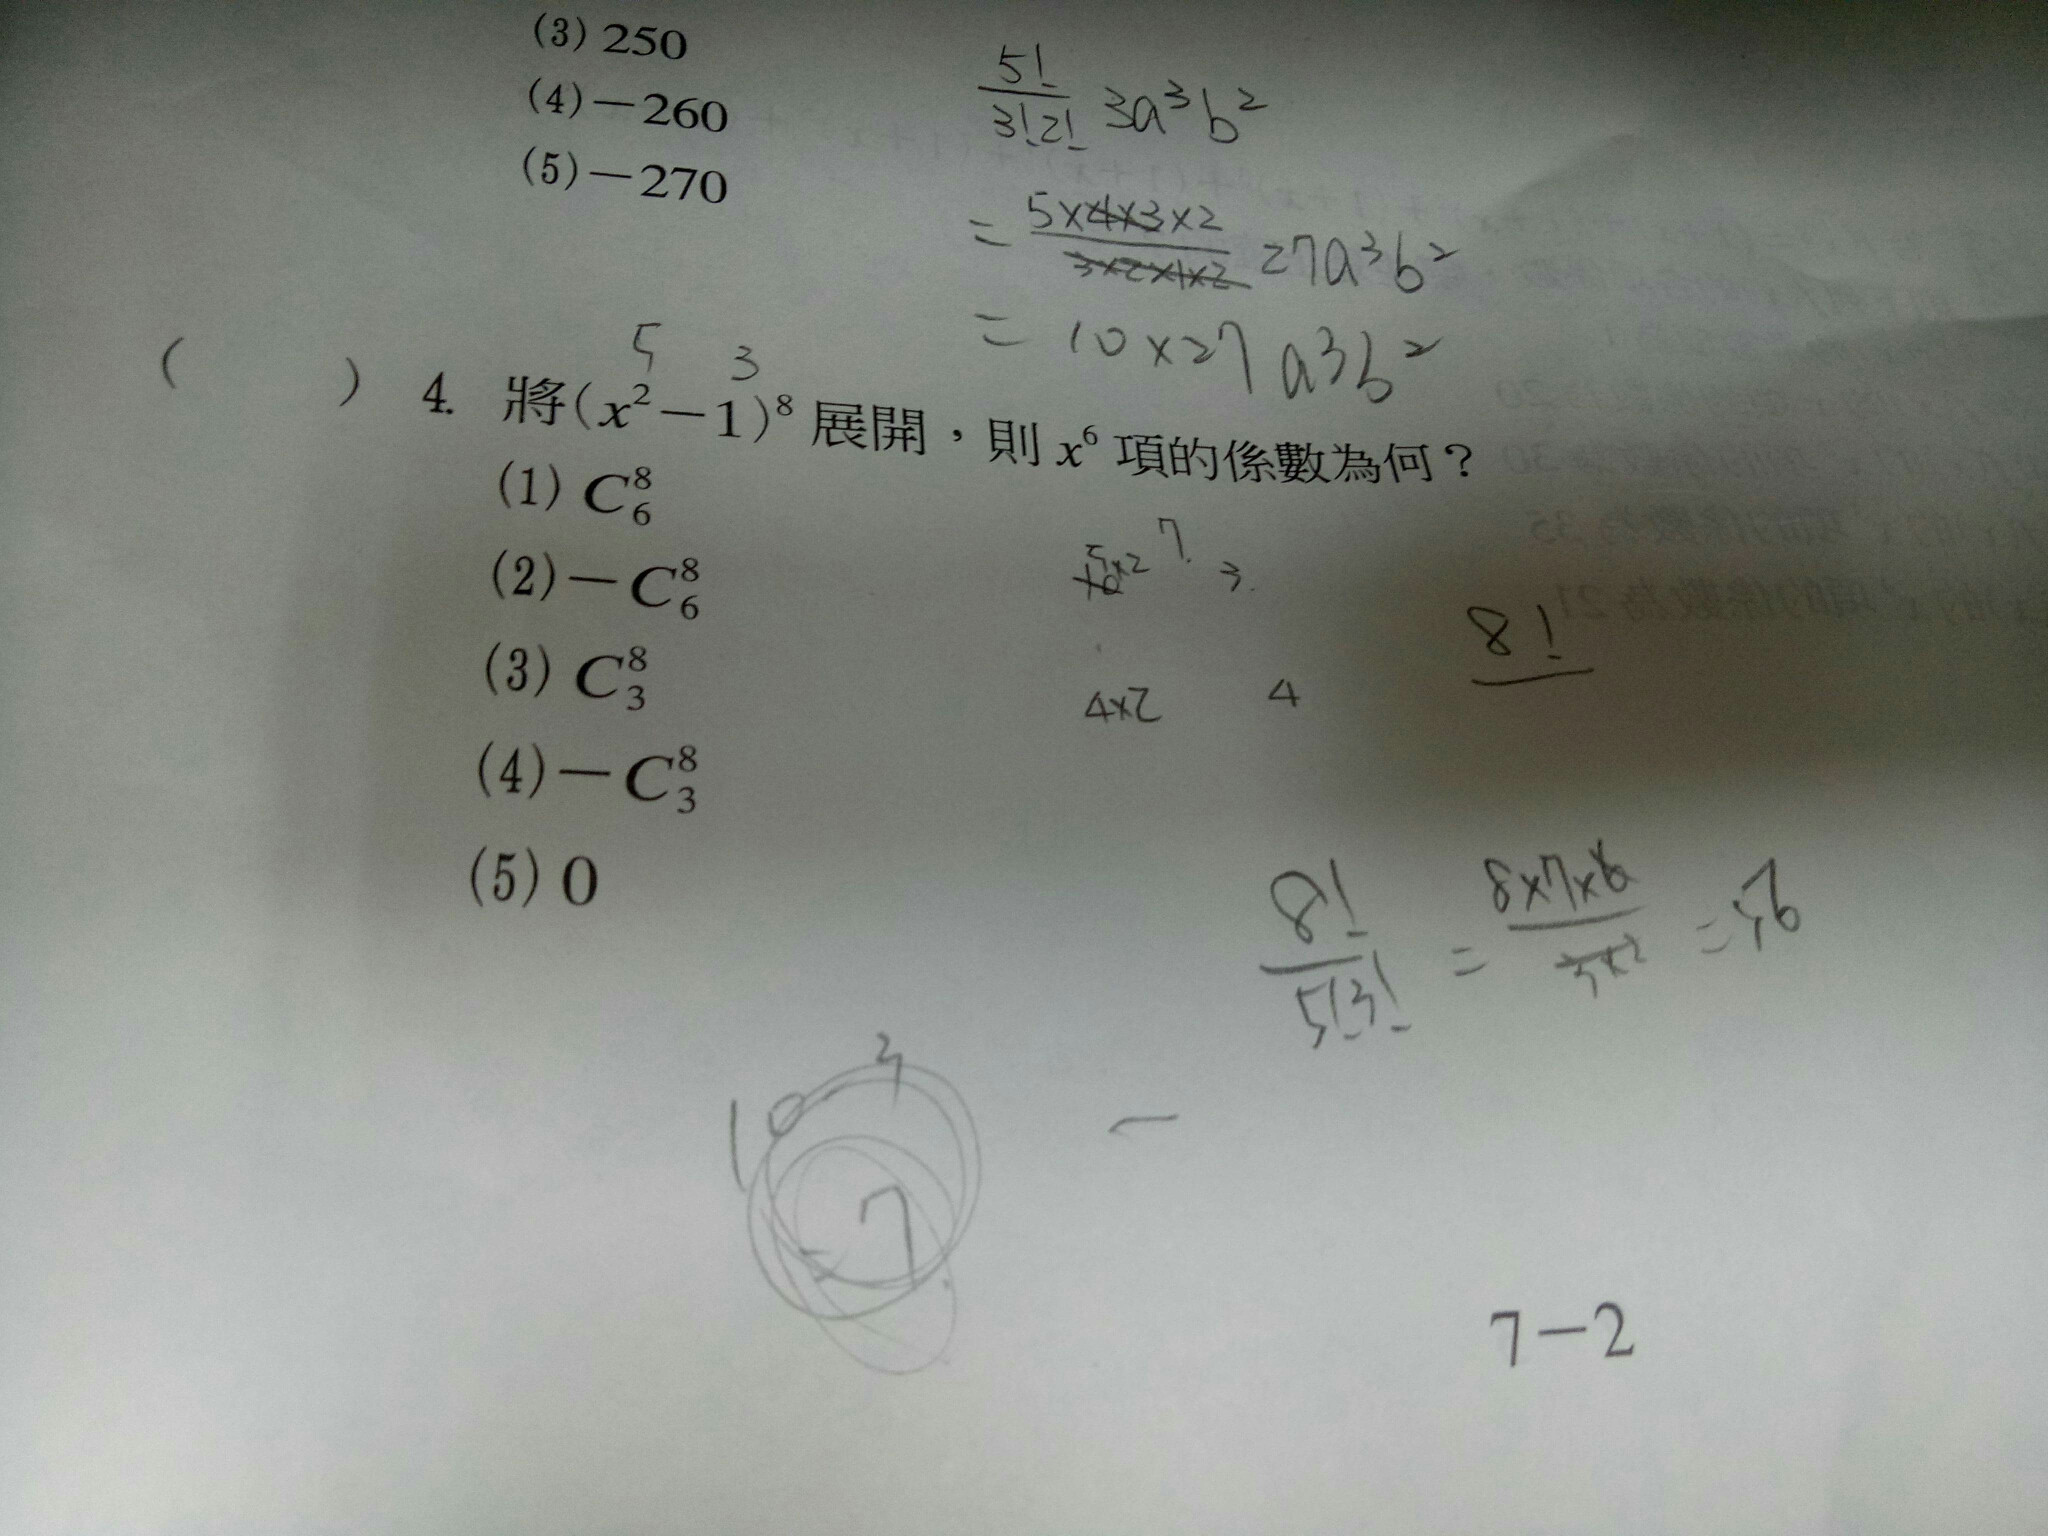 (3) 250
(4) －260
(5) －270
5!
3!2! 3a³b²
= 5×4×3×2
3×2×1×2 27a³b²
= 10×27 a³b²
5 3
( ) 4. 將(x²－1)⁸展開，則 x⁶ 項的係數為何？
(1) C⁸₆
(2) －C⁸₆
(3) C⁸₃
(4) －C⁸₃
(5) 0
5×2 7 3
4×2 4
8!
8!
5!3! = 8×7×6
3×2 = 56
10
7
7－2